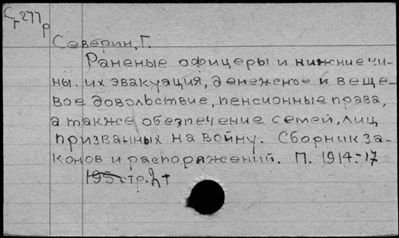 Ст277р
Северин, Г.
Раненые офицеры и нижние чи-
ны. их эвакуация, денежное и веще-
вое довольствие, пенсионные права,
а также обезпечение семей, лиц
призванных на войну. Сборник за-
конов и распоряжений. П. 1914-17
195 стр.